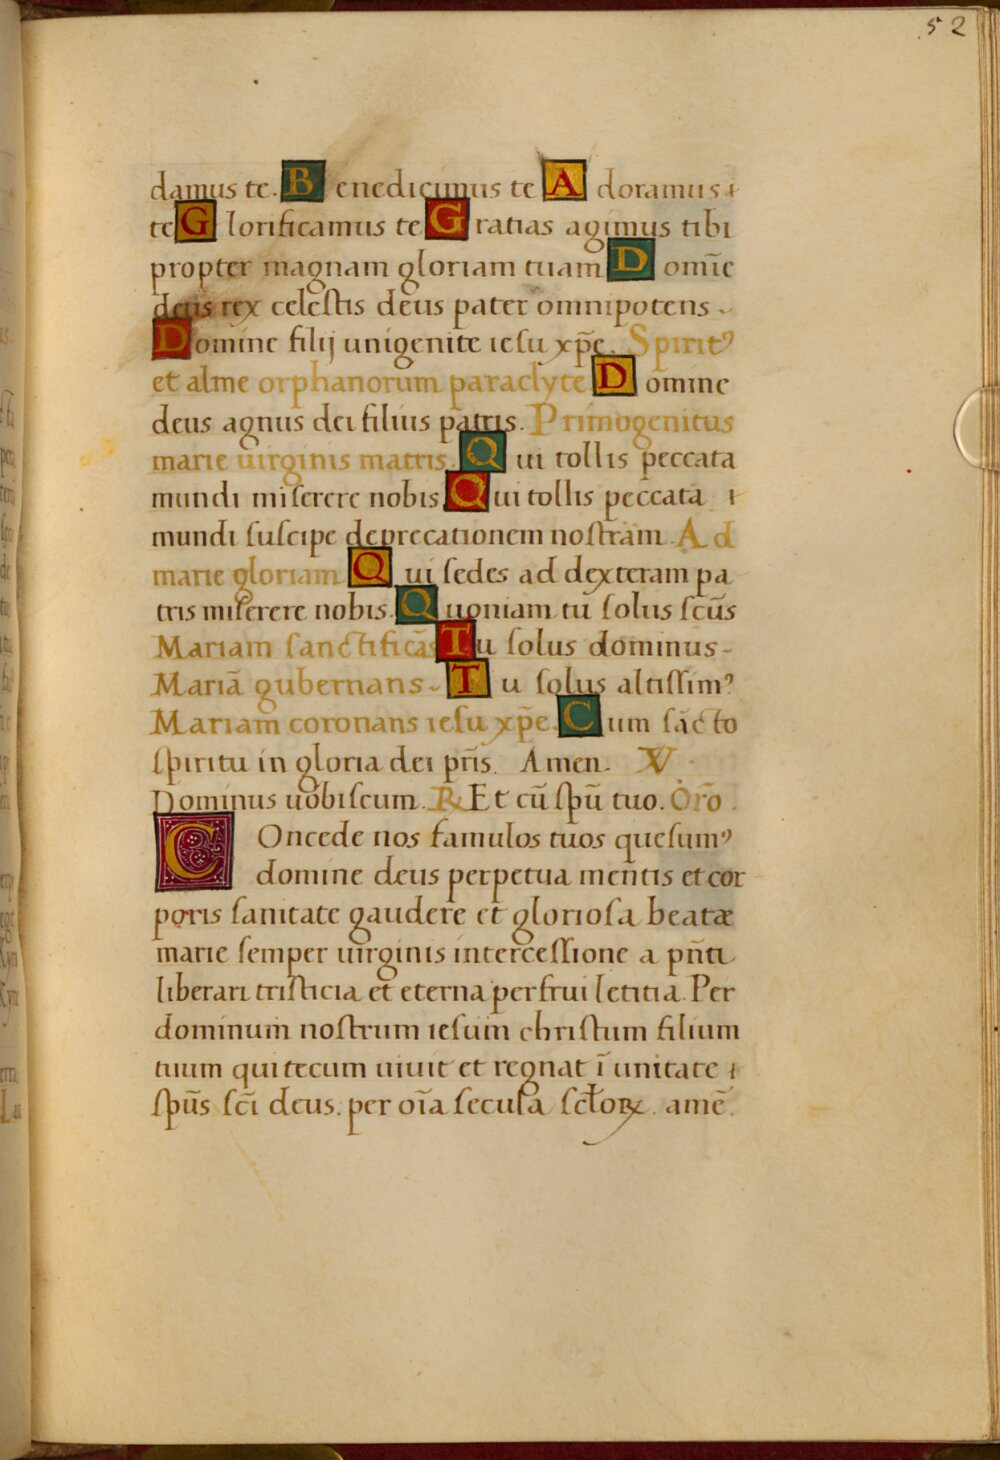 52
damus te. Benedicimus te Adoramus
te Glorificamus te Gratias agimus tibi
propter magnam gloriam tuam Domīe
deus rex celestis deus pater omnipotens -
Domine filij unigenite iesu xp̄e. Spiritꝰ
et alme orphanorum paraclyte Domine
deus agnus dei filius patris. Primogenitus
marie uirginis matris. Qui tollis peccata
mundi miserere nobis Qui tollis peccata
mundi suscipe deprecationem nostram. Ad
marie gloriam Qui sedes ad dexteram pa
tris miserere nobis. Quoniam tu solus scūs
Mariam sanctificās Tu solus dominus -
Mariā gubernans - Tu solus altissimꝰ
Mariam coronans iesu xp̄e. Cum sācto
spiritu in gloria dei pr̄is. Amen. V
Dominus uobiscum. ℞ Et cū spū tuo. Or̄o.
Concede nos famulos tuos quesumꝰ
domine deus perpetua mentis et cor
poris sanitate gaudere et gloriosa beatæ
marie semper uirginis intercessione a pn̄ti
liberari tristicia et eterna perfrui letitia. Per
dominum nostrum iesum christum filium
tuum qui tecum uiuit et regnat ī unitate
spūs scī deus. per oīa secula scl̄oꝝ. amē.